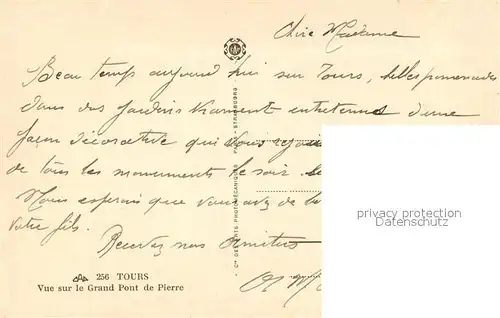 Chère Madame
Beau temps aujourd'hui sur Tours, belles promenades
dans des Jardins vraiment entretenus d'une
façon décorative qui vous
de tous les monuments le soir.
Nous espérons que vous avez de
votre fils.
Recevez nos Amitiés
256 TOURS
Vue sur le Grand Pont de Pierre
Cie DES ARTS PHOTOMÉCANIQUES
PARIS - STRASBOURG
privacy protection
Datenschutz